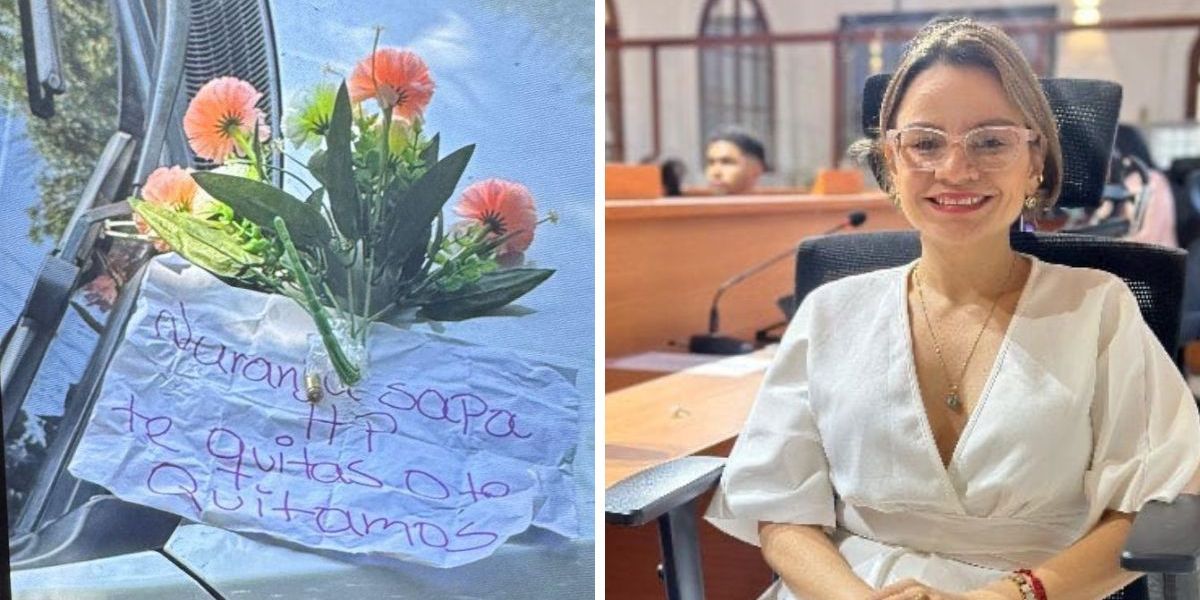 Naranja sapa
HP
te quitas o te
Quitamos